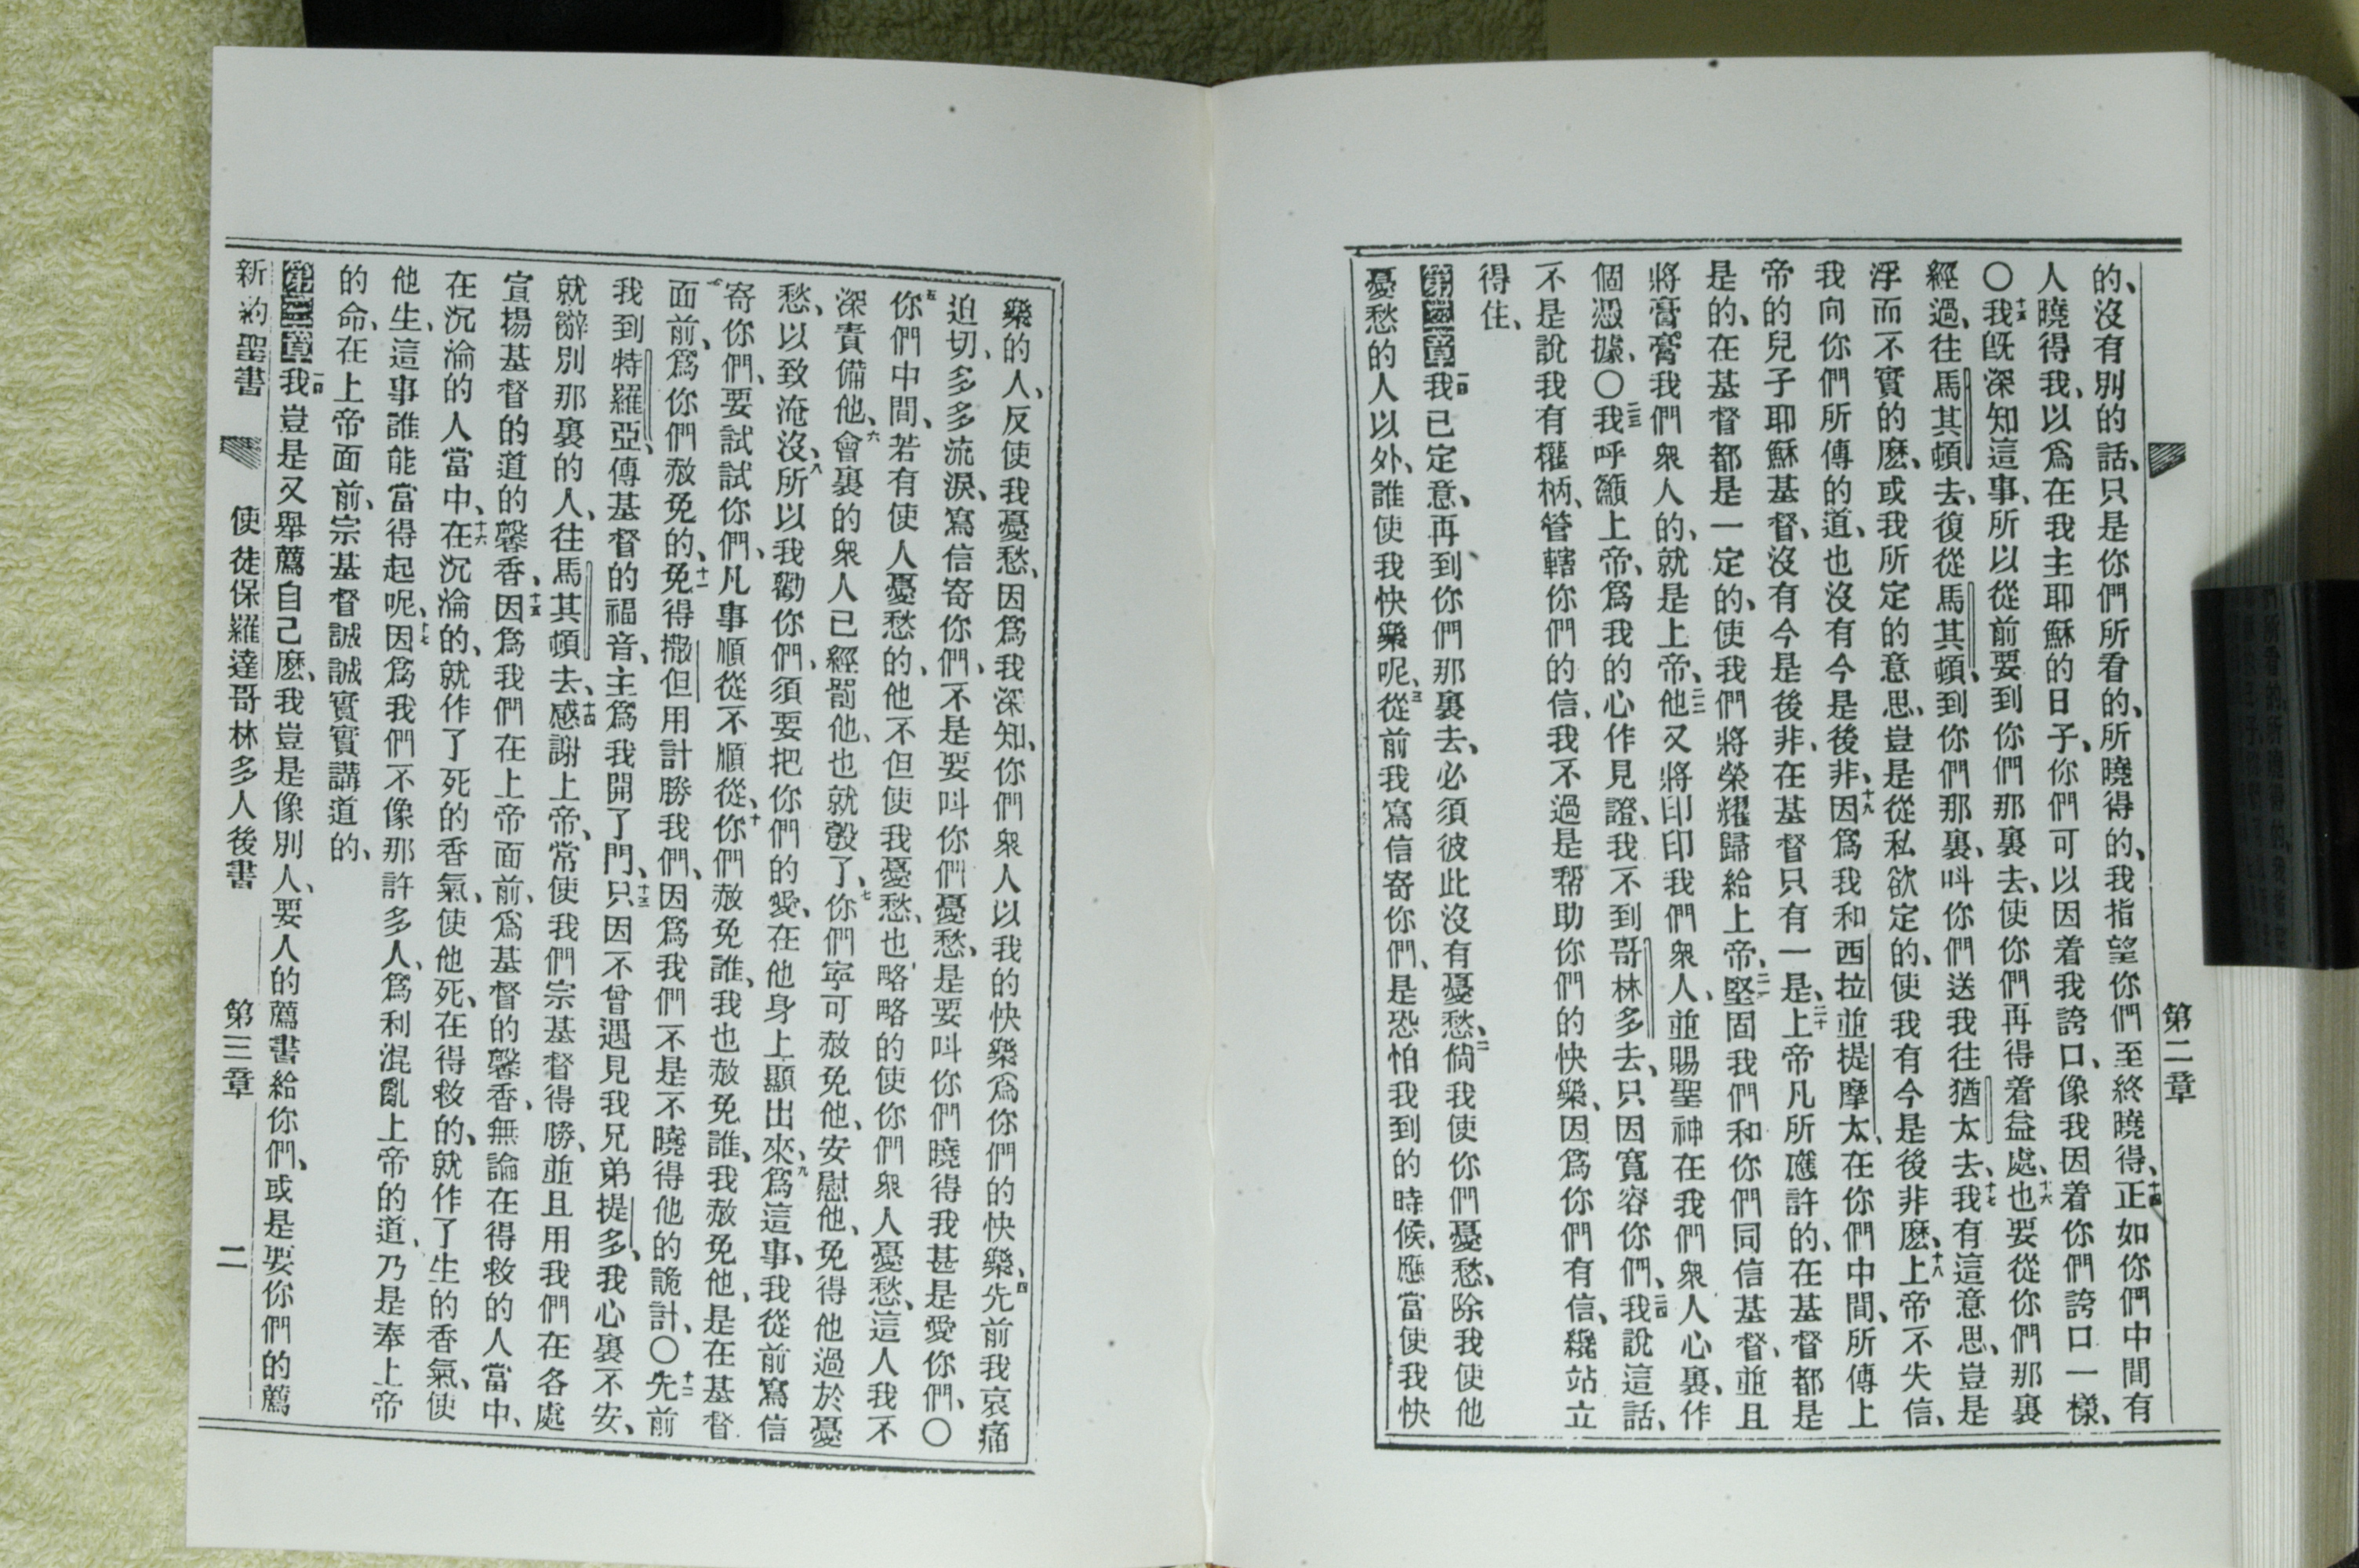 第二章
的、沒有別的話、只是你們所看的、所曉得的、我指望你們至終曉得、十四正如你們中間有
人曉得我、以爲在我主耶穌的日子、你們可以因着我誇口、像我因着你們誇口一樣、
〇十五我旣深知這事、所以從前要到你們那裏去、使你們再得着益處、十六也要從你們那裏
經過、往馬其頓去、復從馬其頓、到你們那裏、呌你們送我往猶太去、十七我有這意思、豈是
浮而不實的麽、或我所定的意思、豈是從私欲定的、使我有今是後非麽、十八上帝不失信、
我向你們所傳的道、也沒有今是後非、十九因爲我和西拉並提摩太、在你們中間、所傳上
帝的兒子耶穌基督、沒有今是後非、在基督只有一是、二十上帝凡所應許的、在基督都是
是的、在基督都是一定的、使我們將榮耀歸給上帝、二一堅固我們和你們同信基督、並且
將膏膏我們衆人的、就是上帝、二二他又將印印我們衆人、並賜聖神在我們衆人心裏、作
個憑據、〇二三我呼籲上帝、爲我的心作見證、我不到哥林多去、只因寬容你們、二四我說這話、
不是說我有權柄、管轄你們的信、我不過是幫助你們的快樂、因爲你們有信、纔站立
得住、
第二章一我已定意、再到你們那裏去、必須彼此沒有憂愁、二倘我使你們憂愁、除我使他
憂愁的人以外、誰使我快樂呢、三從前我寫信寄你們、是恐怕我到的時候、應當使我快
樂的人、反使我憂愁、因爲我深知、你們衆人以我的快樂、爲你們的快樂、四先前我哀痛
迫切、多多流淚、寫信寄你們、不是要叫你們憂愁、是要叫你們曉得我甚是愛你們、〇
五你們中間、若有使人憂愁的、他不但使我憂愁、也略略的使你們衆人憂愁、這人我不
深責備他、六會裏的衆人已經罰他、也就彀了、七你們寧可赦免他、安慰他、免得他過於憂
愁、以致淹沒、八所以我勸你們、須要把你們的愛、在他身上顯出來、九爲這事、我從前寫信
寄你們、要試試你們、凡事順從不順從、十你們赦免誰、我也赦免誰、我赦免他、是在基督
面前、爲你們赦免的、十一免得撒但用計勝我們、因爲我們不是不曉得他的詭計、〇十二先前
我到特羅亞、傳基督的福音、主爲我開了門、十三只因不曾遇見我兄弟提多、我心裏不安、
就辭別那裏的人、往馬其頓去、十四感謝上帝、常使我們宗基督得勝、並且用我們在各處
宣揚基督的道的馨香、十五因爲我們在上帝面前、爲基督的馨香、無論在得救的人當中、
在沉淪的人當中、十六在沉淪的、就作了死的香氣、使他死、在得救的、就作了生的香氣、使
他生、這事誰能當得起呢、十七因爲我們不像那許多人、爲利混亂上帝的道、乃是奉上帝
的命、在上帝面前、宗基督誠誠實實講道的、
第三章一我豈是又舉薦自己麽、我豈是像別人、要人的薦書給你們、或是要你們的薦
新約聖書 使徒保羅達哥林多人後書 第三章 二